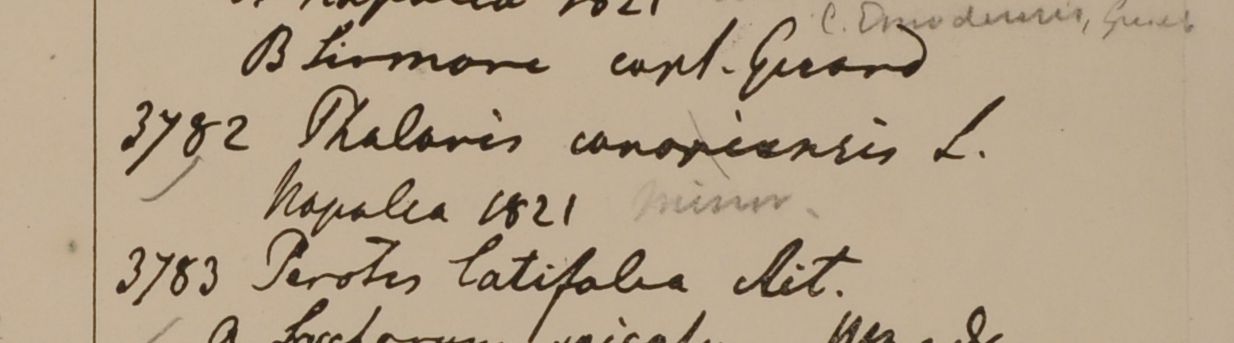 Napalea 1821
B Sirmore capt. Gerard
3782 Phalaris canariensis L.
Napalea 1821 minor.
3783 Perotis latifolia Ait.